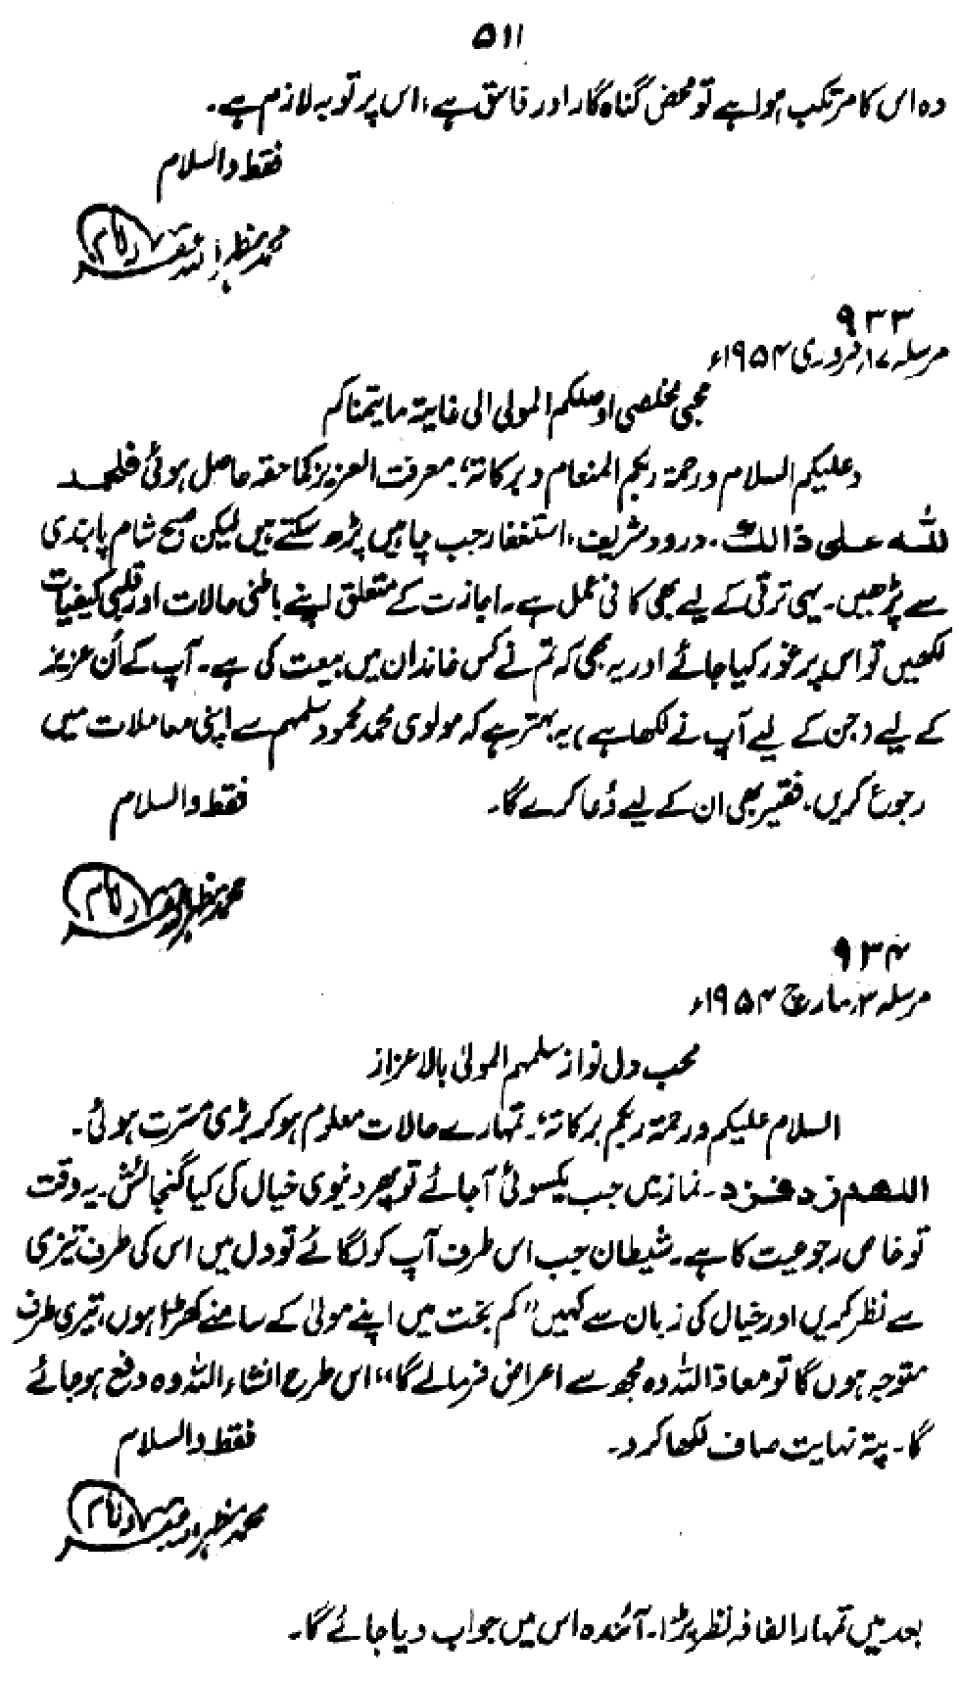 ۵۱۱
وہ اس کا مرتکب ہوا ہے تو محض گناہ گار اور فاسق ہے، اس پر توبہ لازم ہے۔
فقط والسلام
محمد مظہر اللہ
۹۳۳
مرسلہ ۱۷؍ فروری ۱۹۵۴ء
محبی مخلصی اوصلکم المولی الی غایۃ ما یتمناکم
وعلیکم السلام ورحمۃ ربکم المنعام وبرکاتہ، بمعرفت العزیز کما حقہ حاصل ہوئی فلحمد
للہ علی ذالک۔ درود شریف، استغفار جب چاہیں پڑھ سکتے ہیں لیکن صبح شام پابندی
سے پڑھیں۔ یہی ترقی کے لیے بھی کافی عمل ہے۔ اجازت کے متعلق اپنے باطنی حالات اور قلبی کیفیات
لکھیں تو اس پر غور کیا جائے اور یہ بھی کہ تم نے کس خاندان میں بیعت کی ہے۔ آپ کے اُن عزیز
کے لیے (جن کے لیے آپ نے لکھا ہے) یہ بہتر ہے کہ مولوی محمد محمود سلمہم سے اپنی معاملات میں
رجوع کریں، فقیر بھی ان کے لیے دُعا کرے گا۔
فقط والسلام
محمد مظہر اللہ
۹۳۴
مرسلہ ۳؍ مارچ ۱۹۵۴ء
محب دل نواز سلمہم المولیٰ بالاعزاز
السلام علیکم ورحمۃ ربکم برکاتہ، تمہارے حالات معلوم ہو کر بڑی مسرّت ہوئی۔
اللھم زد فزد۔ نماز میں جب یکسوئی آجائے تو پھر دنیوی خیال کی کیا گنجائش۔ یہ وقت
تو خاص رجوعیت کا ہے۔ شیطان جب اس طرف آپ کو لگائے تو دل میں اس کی طرف تیزی
سے نظر کریں اور خیال کی زبان سے کہیں ”کم بخت میں اپنے مولیٰ کے سامنے کھڑا ہوں، تیری طرف
متوجہ ہوں گا تو معاذ اللہ وہ مجھ سے اعراض فرمالے گا“ اس طرح انشاء اللہ وہ دفع ہو جائے
گا۔ پتہ نہایت صاف لکھا کرو۔
فقط والسلام
محمد مظہر
بعد میں تمہارا لفافہ نظر پڑا۔ آئندہ اس میں جواب دیا جائے گا۔